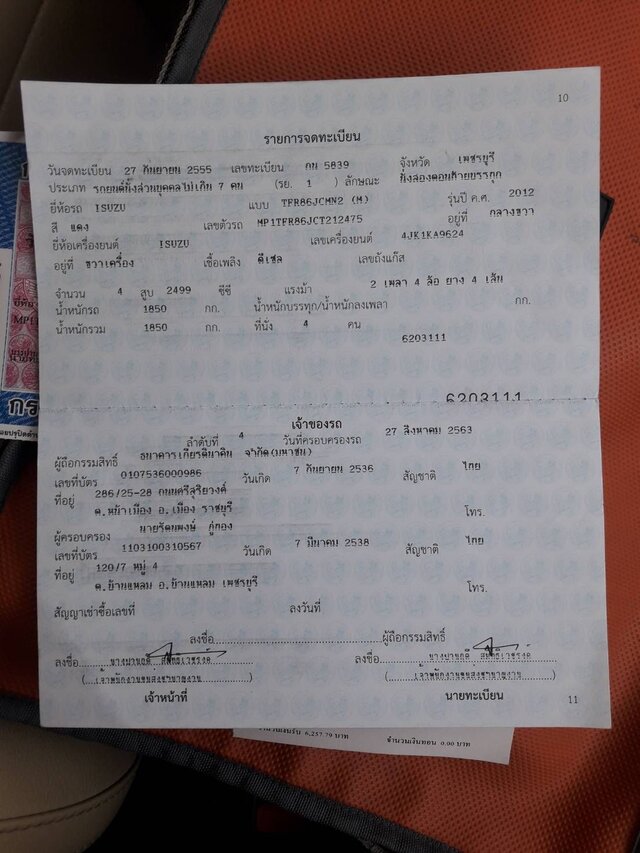 10
รายการจดทะเบียน
วันจดทะเบียน 27 กันยายน 2555 เลขทะเบียน กน 5839 จังหวัด เพชรบุรี
ประเภท รถยนต์นั่งส่วนบุคคลไม่เกิน 7 คน (รย. 1 ) ลักษณะ นั่งสองตอนท้ายบรรทุก
ยี่ห้อรถ ISUZU แบบ TFR86JCMN2 (M) รุ่นปี ค.ศ. 2012
สี แดง เลขตัวรถ MP1TFR86JCT212475 อยู่ที่ กลางขวา
ยี่ห้อเครื่องยนต์ ISUZU เลขเครื่องยนต์ 4JK1KA9624
อยู่ที่ ขวาเครื่อง เชื้อเพลิง ดีเซล เลขถังแก๊ส
จำนวน 4 สูบ 2499 ซีซี แรงม้า 2 เพลา 4 ล้อ ยาง 4 เส้น
น้ำหนักรถ 1850 กก. น้ำหนักบรรทุก/น้ำหนักลงเพลา กก.
น้ำหนักรวม 1850 กก. ที่นั่ง 4 คน
6203111
6203111
เจ้าของรถ
ลำดับที่ 4 วันที่ครอบครองรถ 27 สิงหาคม 2563
ผู้ถือกรรมสิทธิ์ ธนาคารเกียรตินาคิน จำกัด(มหาชน)
เลขที่บัตร 0107536000986 วันเกิด 7 กันยายน 2536 สัญชาติ ไทย
ที่อยู่ 286/25-28 ถนนศรีสุริยวงศ์
ต.หน้าเมือง อ.เมือง ราชบุรี โทร.
ผู้ครอบครอง นายรัตนพงษ์ ภู่ทอง
เลขที่บัตร 1103100310567 วันเกิด 7 มีนาคม 2538 สัญชาติ ไทย
ที่อยู่ 120/7 หมู่ 4
ต.บ้านแหลม อ.บ้านแหลม เพชรบุรี โทร.
สัญญาเช่าซื้อเลขที่ ลงวันที่
ลงชื่อ ผู้ถือกรรมสิทธิ์
ลงชื่อ ลงชื่อ
(เจ้าพนักงานขนส่งชำนาญงาน) (เจ้าพนักงานขนส่งชำนาญงาน)
เจ้าหน้าที่ นายทะเบียน
11
จำนวนเงินรับ 6,257.79 บาท จำนวนเงินทอน 0.00 บาท